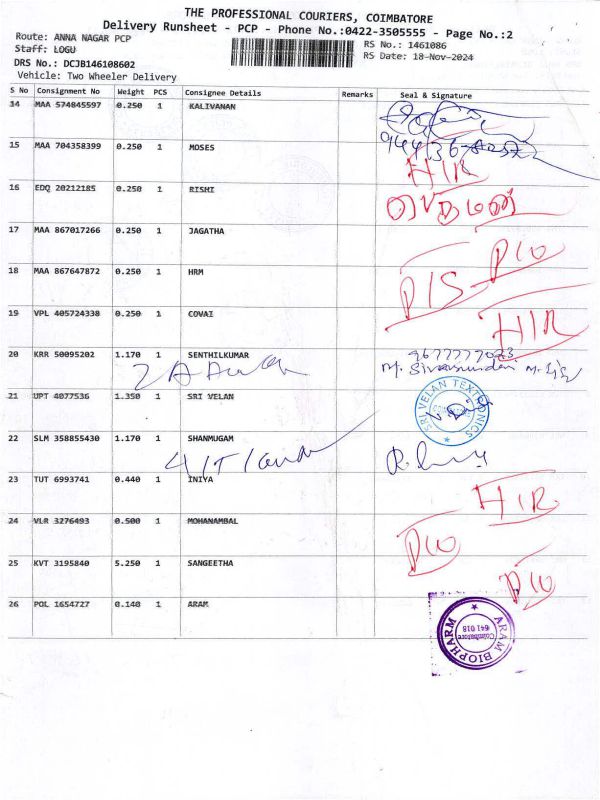 THE PROFESSIONAL COURIERS, COIMBATORE
Delivery Runsheet - PCP - Phone No.:0422-3505555 - Page No.:2
Route: ANNA NAGAR PCP
Staff: LOGU
DRS No.: DCJB146108602
Vehicle: Two Wheeler Delivery
RS No.: 1461086
RS Date: 18-Nov-2024
S No Consignment No Weight PCS Consignee Details Remarks Seal & Signature
14 MAA 574845597 0.250 1 KALIVANAN
15 MAA 704358399 0.250 1 MOSES
HIR
16 EDQ 20212185 0.250 1 RISHI
17 MAA 867017266 0.250 1 JAGATHA
DIO
18 MAA 867647872 0.250 1 HRM
DIS
19 VPL 405724338 0.250 1 COVAI
HIR
20 KRR 50095202 1.170 1 SENTHILKUMAR
M. Sivasundari
21 UPT 4077536 1.350 1 SRI VELAN
SRI VELAN TEXTRONICS
22 SLM 358855430 1.170 1 SHANMUGAM
23 TUT 6993741 0.440 1 INIYA
HIR
24 VLR 3276493 0.500 1 MOHANAMBAL
DIO
25 KVT 3195840 5.250 1 SANGEETHA
DIO
26 POL 1654727 0.140 1 ARAM
ARAM BIOPHARM
Coimbatore
641 018